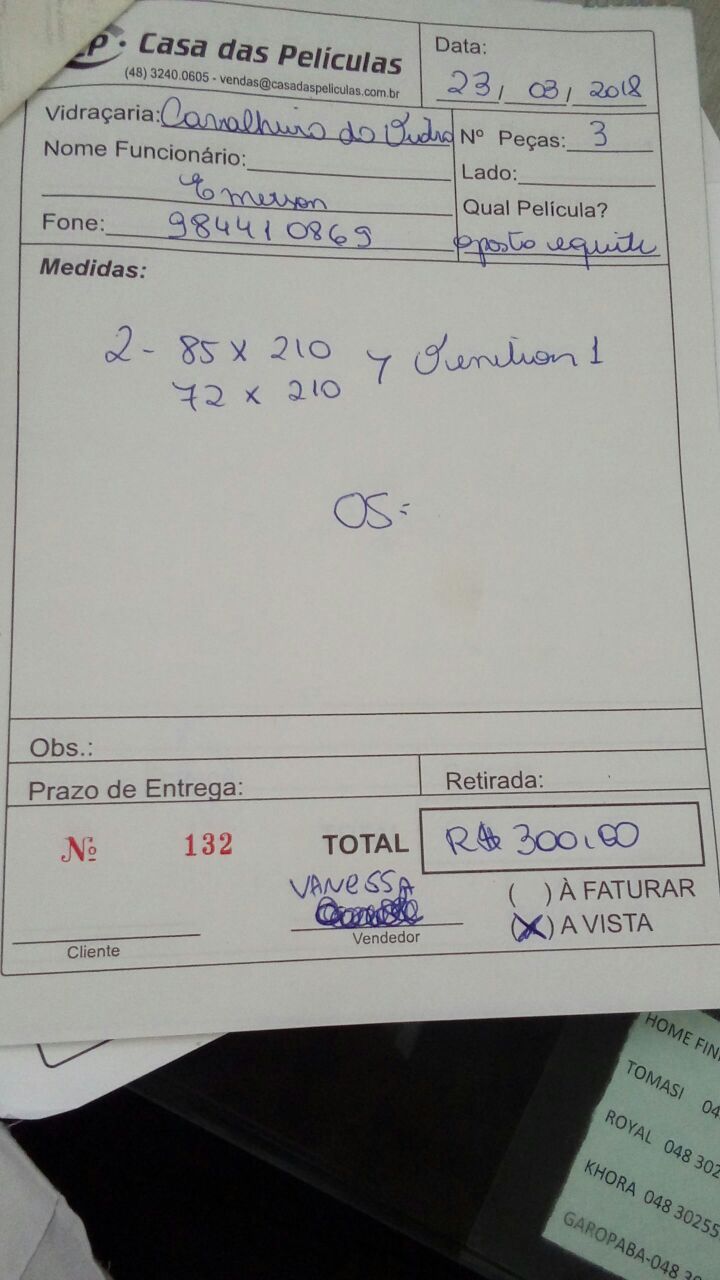 Casa das Películas
(48) 3240.0605 - vendas@casadaspeliculas.com.br
Data:
23/03/2018
Vidraçaria: Carvalheiro do Vidro
Nº Peças: 3
Nome Funcionário:
Emerson
Lado:
Fone: 984410869
Qual Película?
Medidas:
2- 85 x 210
72 x 210
OS:
Obs.:
Prazo de Entrega:
Retirada:
Nº 132
TOTAL
R$ 300,00
VANESSA
Vendedor
Cliente
( ) À FATURAR
(X) A VISTA
HOME FIN
TOMASI 04
ROYAL 048 302
KHORA 048 30255
GAROPABA-048 3